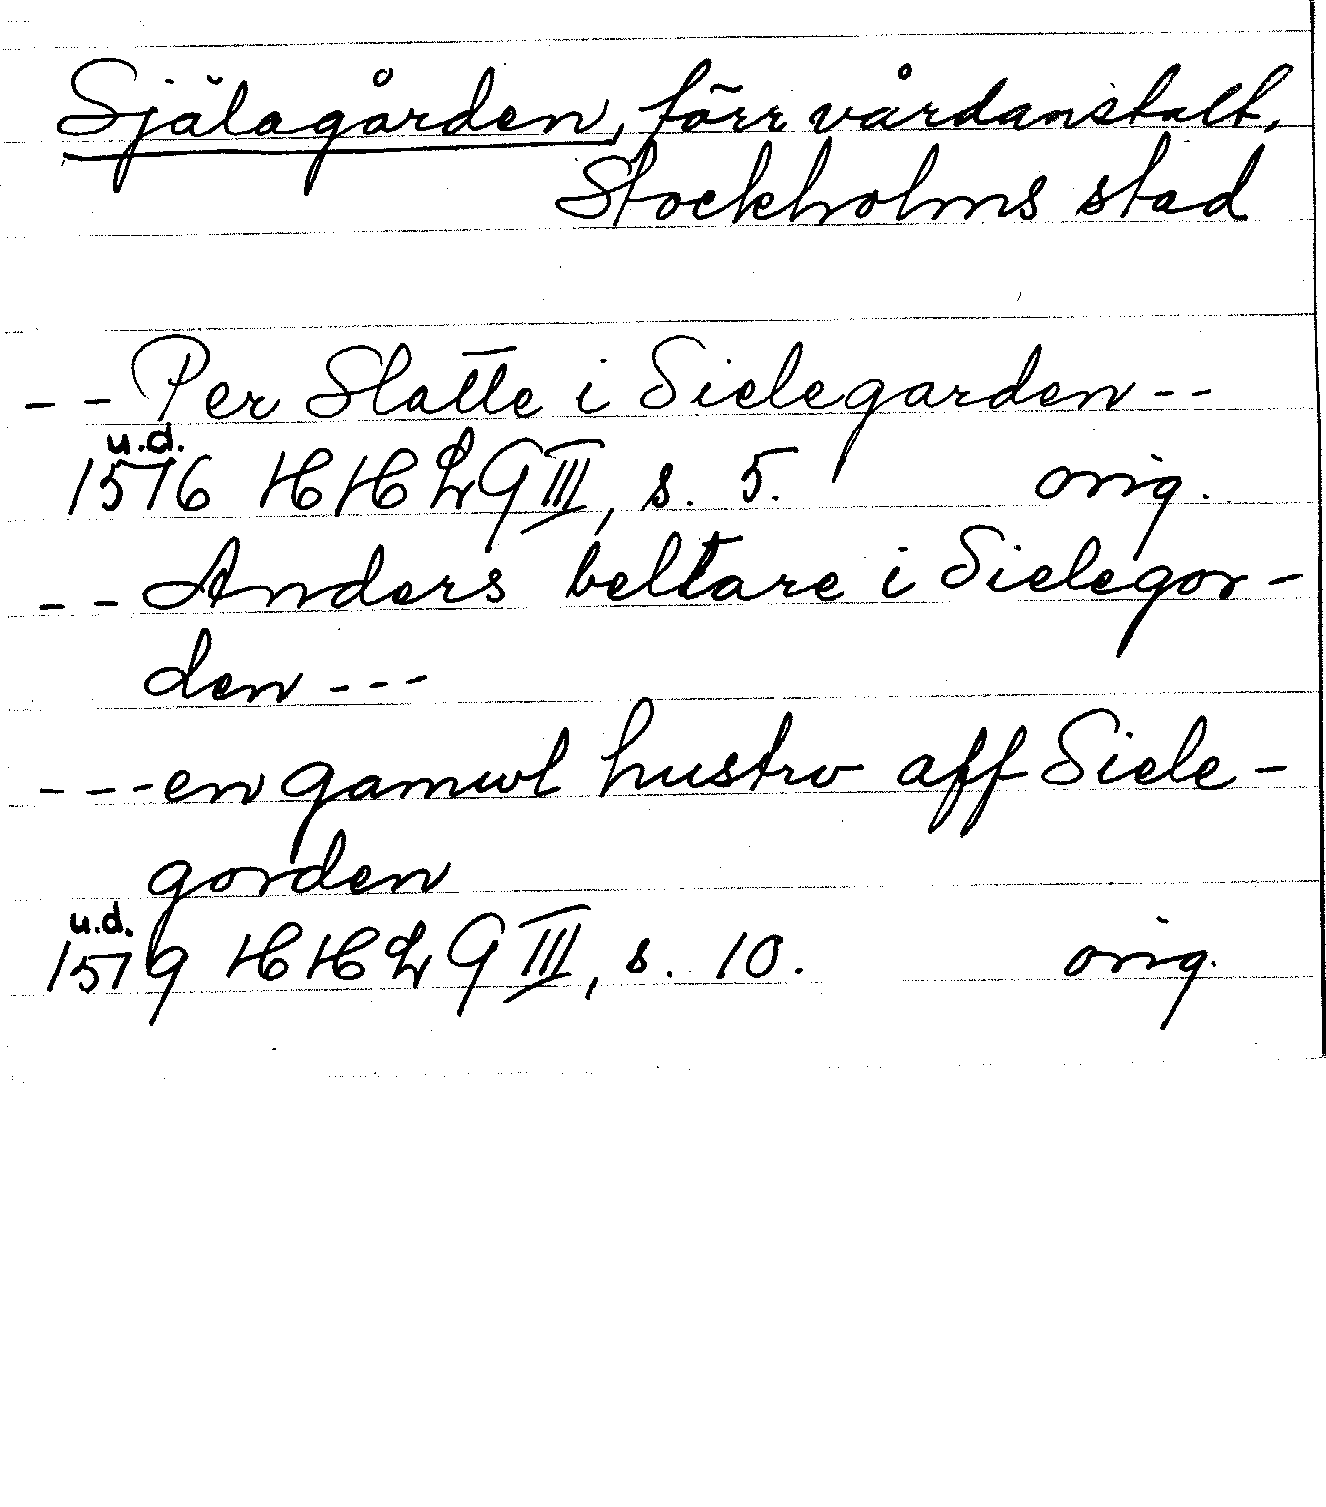 Själagården, förr vårdanstalt,
Stockholms stad
-- Per Slatte i Sielegarden --
u.d.
1576 HHLG III, s. 5. orig.
-- Anders beltare i Sielegor-
den ---
--- en gamwl hustrv aff Siele-
gorden
u.d.
1579 HHLG III, s. 10. orig.